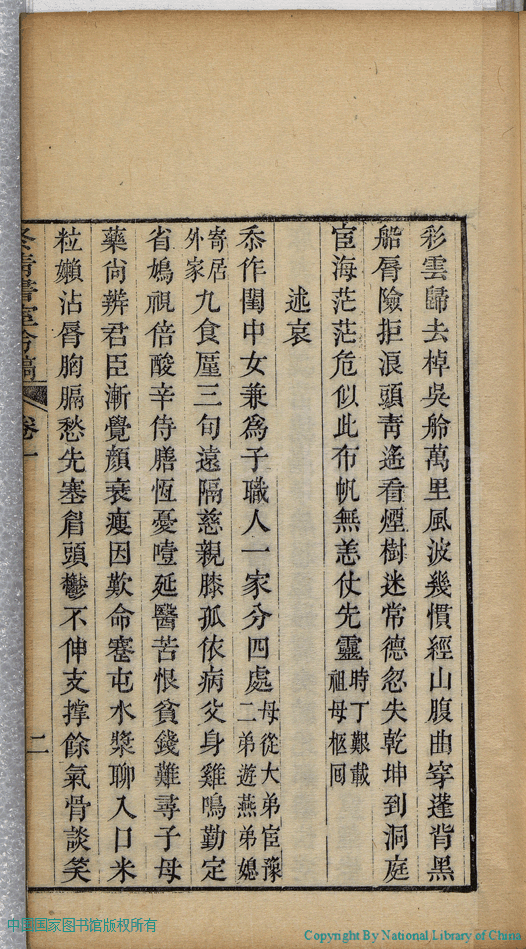 彩雲歸去棹吳舲萬里風波幾慣經山腹曲穿蓬背黑
船脣險拒浪頭靑遙看煙樹迷常德忽失乾坤到洞庭
宦海茫茫危似此布帆無恙仗先靈時丁艱載祖母柩囘
述哀
忝作閨中女兼爲子職人一家分四處母從大弟宦豫二弟遊燕弟媳
寄居外家九食厪三旬遠隔慈親膝孤依病父身雞鳴勤定
省鳩祝倍酸辛侍膳恆憂噎延醫苦恨貧錢難尋子母
藥尙辨君臣漸覺顏衰瘦因歎命蹇屯水漿聊入口米
粒嬾沾脣胸膈愁先塞眉頭鬱不伸支撐餘氣骨談笑
卷一
二
中国国家图书馆版权所有
Copyright By National Library of China